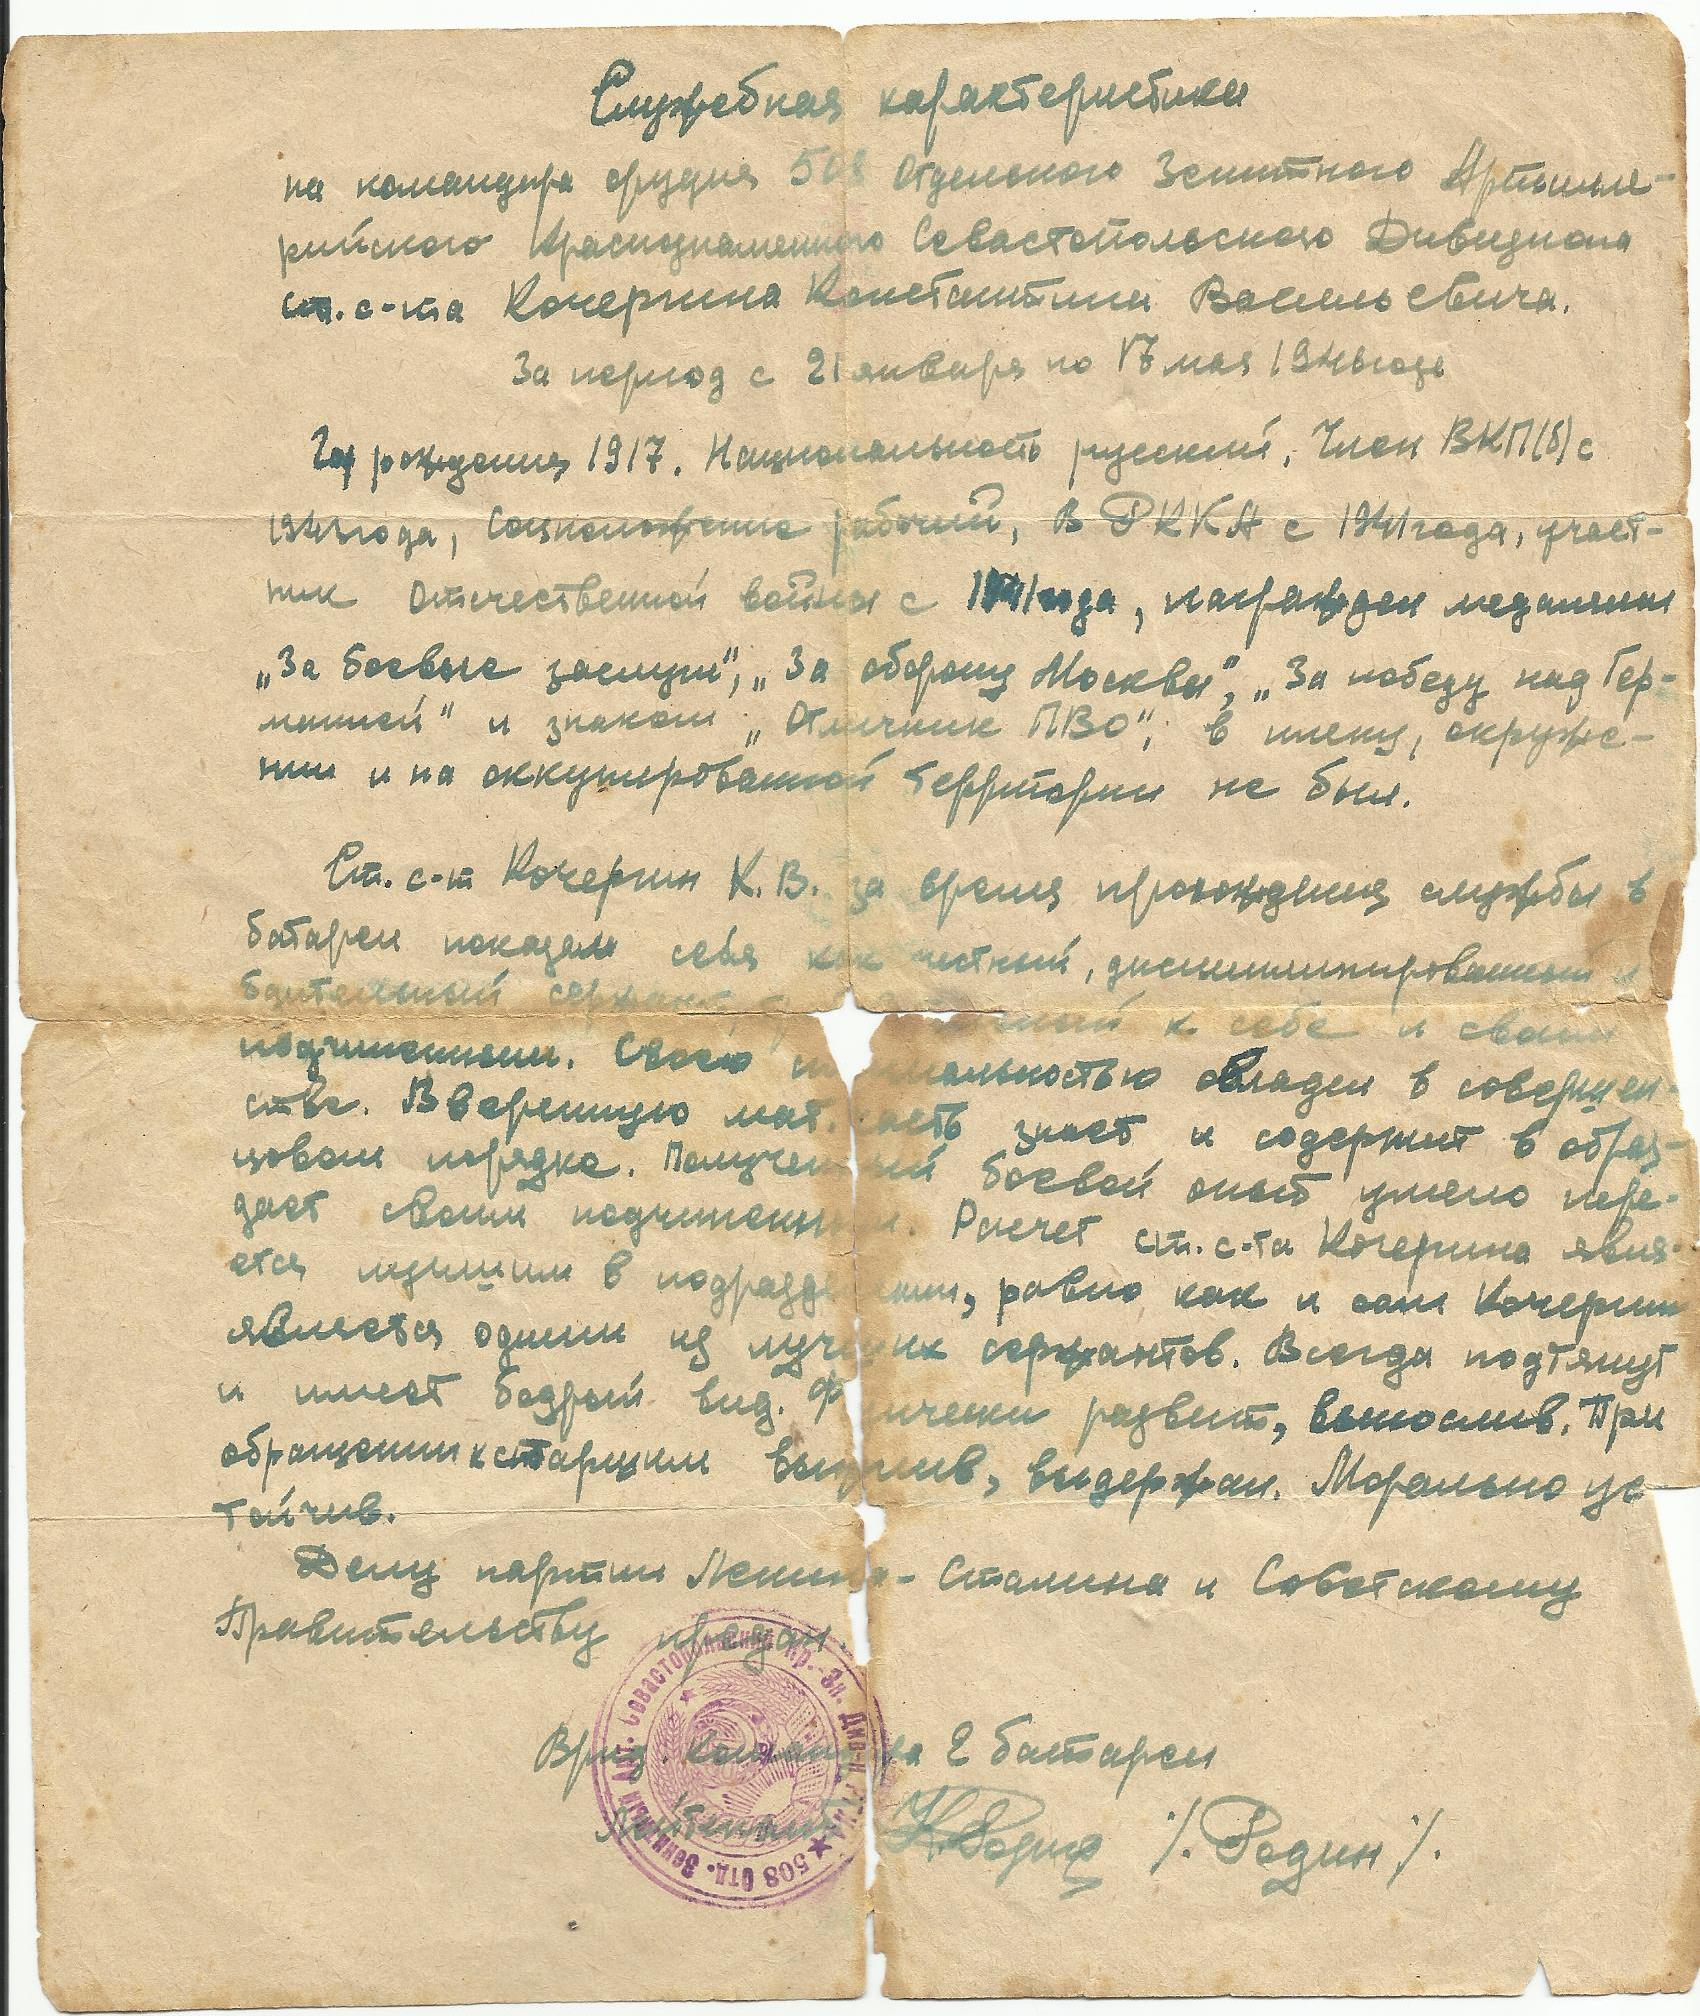 Служебная характеристика
на командира орудия 508 Отдельного Зенитного Артилле-
рийского Краснознаменного Севастопольского Дивизиона
ст. с-та Кочергина Константина Васильевича.
За период с 21 января по 17 мая 1946 года
Год рождения 1917. Национальность русский, Член ВКП(б) с
года, Соцположение рабочий, в РККА с 1941 года, участ-
ник Отечественной войны с 1941 года, награжден медалями
„За боевые заслуги", „За оборону Москвы", „За победу над Гер-
манией" и знаком „Отличник ПВО", в плену, окруже-
нии и на оккупированной территории не был.
Ст. с-т Кочергин К.В. за время прохождения службы в
батареи показал себя как честный, дисциплинированный и
бдительный сержант, к себе и своим
подчиненным. Своею специальностью овладел в совершен-
стве. Вверенную мат. часть знает и содержит в образ-
цовом порядке. Полученный боевой опыт умело пере-
дает своим подчиненным. Расчет ст. с-та Кочергина явля-
ется лучшим в подразделении, равно как и сам Кочергин
является одним из лучших сержантов. Всегда подтянут
и имеет бодрый вид. Физически развит, вынослив. При
обращении к старшим вежлив, выдержан. Морально ус
тойчив.
Делу партии Ленина-Сталина и Советскому
Правительству предан.
Врид. Командира 2 батареи
Лейтенант Н. Родин /. Родин /.
508 Отд. Зенитный Арт. Севастопольский Кр.-Зн. Див-н